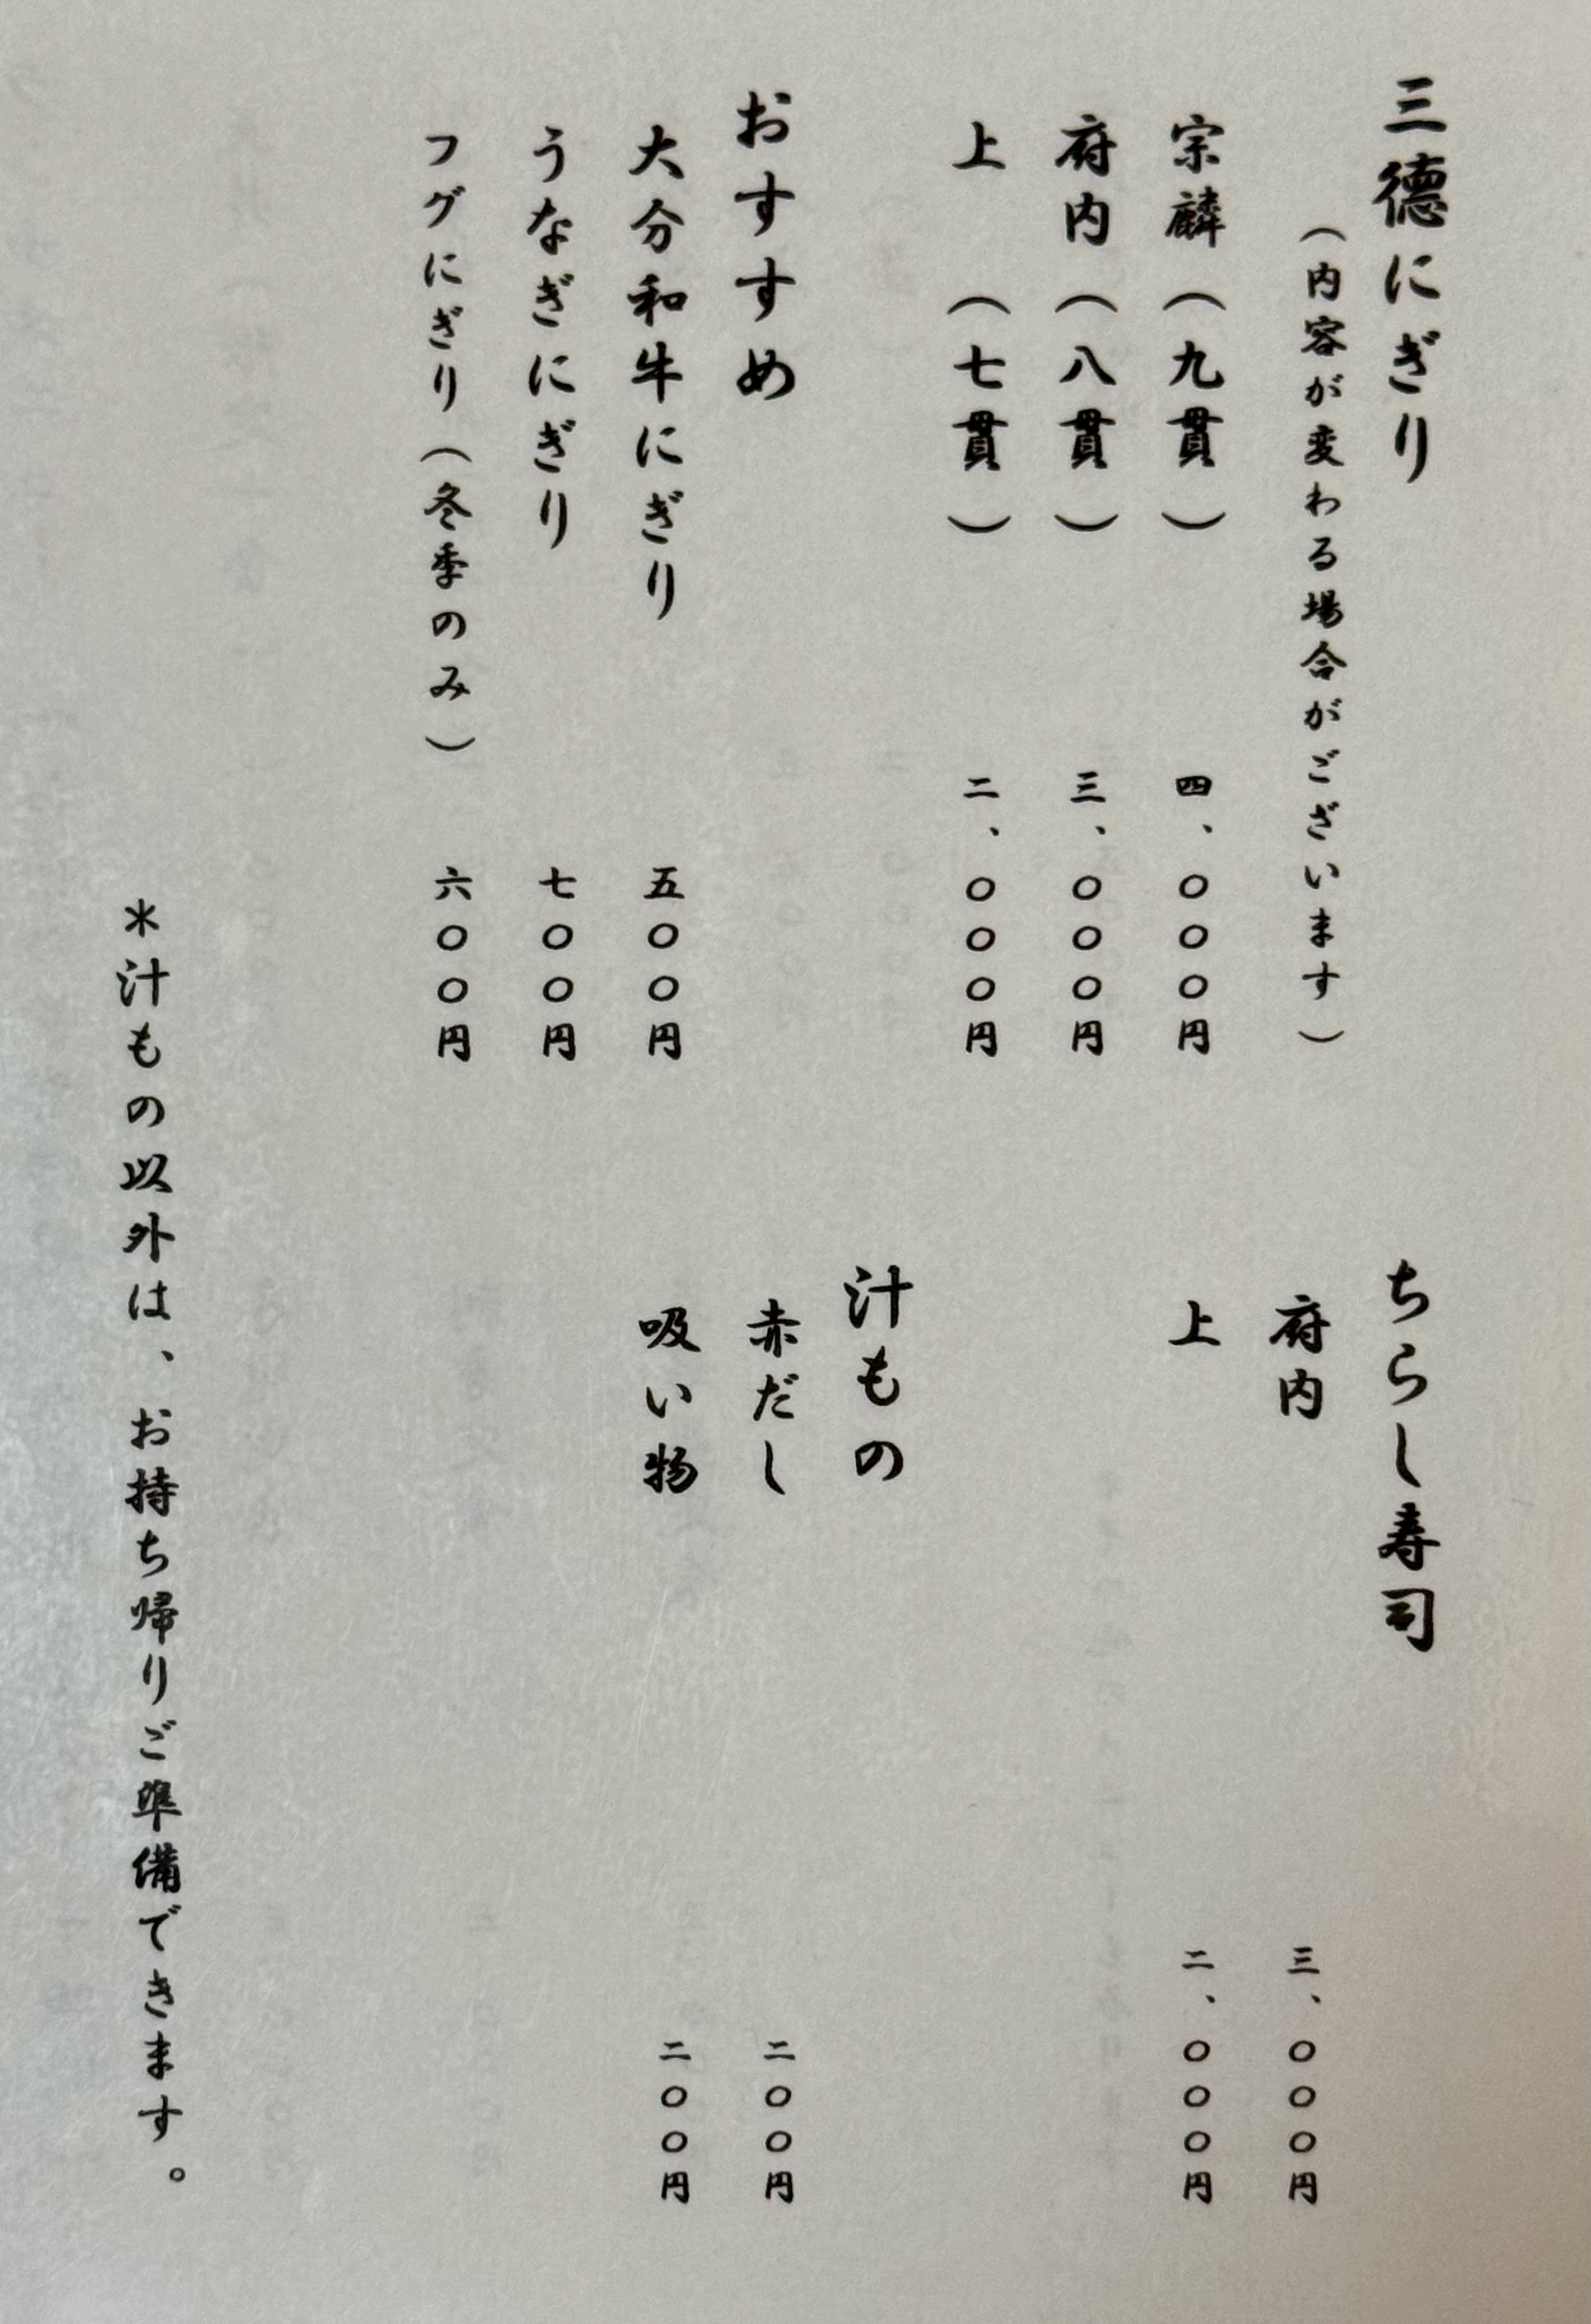 三徳にぎり
（内容が変わる場合がございます）
宗麟（九貫）　四、〇〇〇円
府内（八貫）　三、〇〇〇円
上　（七貫）　二、〇〇〇円
おすすめ
大分和牛にぎり　五〇〇円
うなぎにぎり　七〇〇円
フグにぎり（冬季のみ）　六〇〇円
ちらし寿司
府内　三、〇〇〇円
上　二、〇〇〇円
汁もの
赤だし　二〇〇円
吸い物　二〇〇円
＊汁もの以外は、お持ち帰りご準備できます。